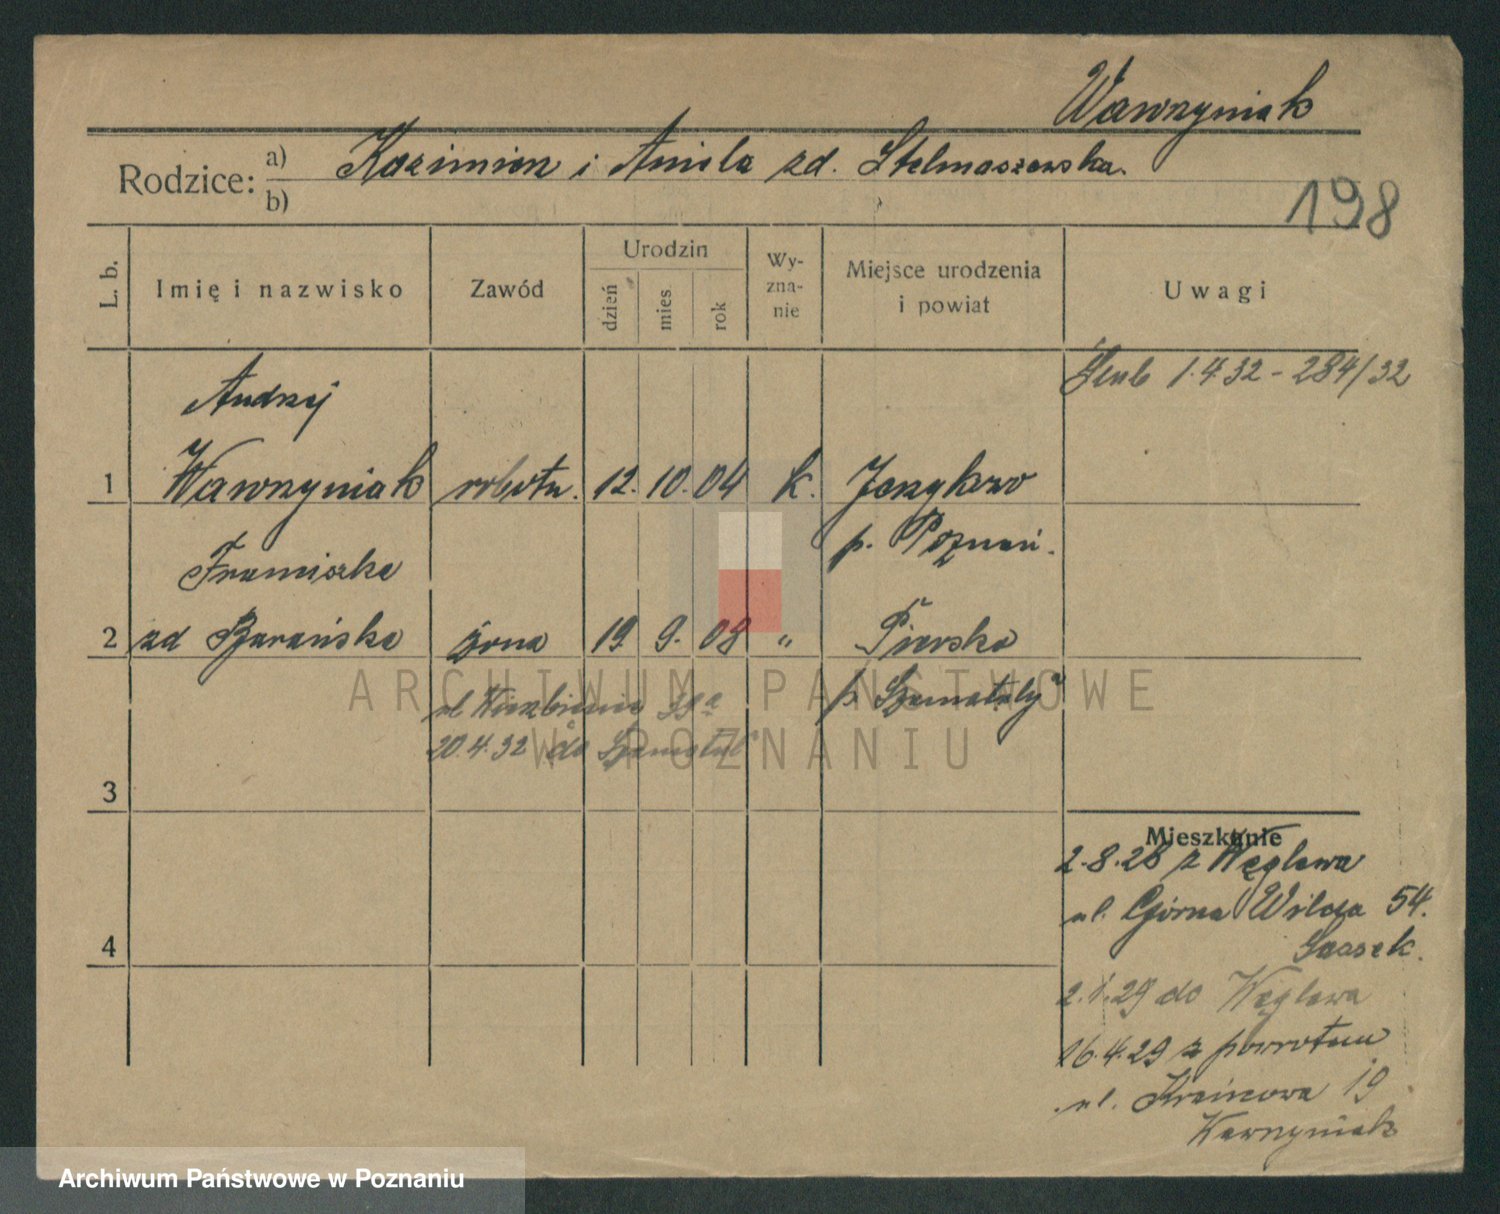 Wawrzyniak
Rodzice: a) Kazimierz i Aniela zd. Stelmaszewska.
b)
198
L. b. Imię i nazwisko Zawód Urodzin dzień mies rok Wyznanie Miejsce urodzenia i powiat Uwagi
Ślub 1.4.32 - 284/32
Andrzej
1 Wawrzyniak robotn. 12. 10. 04 k. Jerzykowo
p. Poznań.
Franciszka
2 zd Barańska żona 19 9. 08 " Piersko
p. Szamotuły
ul Wierzbięcice 39a
20.4.32 do Szamotuł
3
Mieszkanie
2.8.28 z Węglewa
ul. Górna Wilda 54.
4
2.1.29 do Węglewa
16.4.29 z powrotem
ul. 19
Wawrzyniak
ARCHIWUM PAŃSTWOWE
W POZNANIU
Archiwum Państwowe w Poznaniu